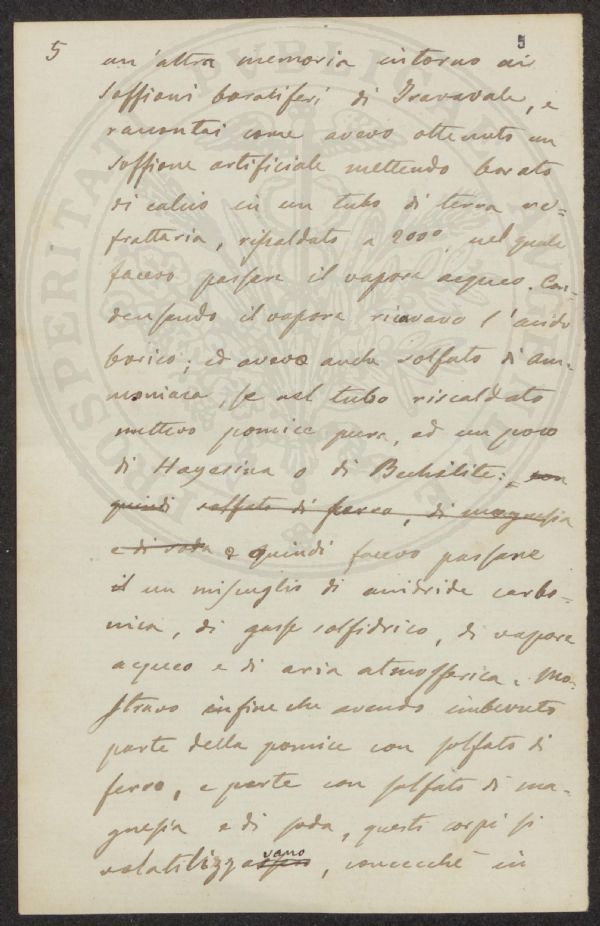 5
5
un'altra memoria intorno ai
soffioni boraciferi di Travavale, e
raccontai come avevo ottenuto un
soffione artificiale mettendo borato
di calcio in un tubo di terra re=
frattaria, riscaldato a 200°, nel quale
facevo passare il vapore acqueo. Con=
densando il vapore ricavavo l'acido
borico; ed avevo anche solfato di am=
moniaca, se nel tubo riscaldato
mettevo pomice pura, ed un poco
di Hayesina o di Bechilite: non
quindi solfato di ferro, di magnesia
e di soda e quindi facevo passare
il un miscuglio di anidride carbo=
nica, di gasse solfidrico, di vapore
acqueo e di aria atmosferica. Mo=
stravo infine che avendo imbevuto
parte della pomice con solfato di
ferro, e parte con solfato di ma=
gnesia e di soda, questi corpi si
volatilizzavano, conecchè in
PROSPERITATI PUBLICAE AUGENDAE